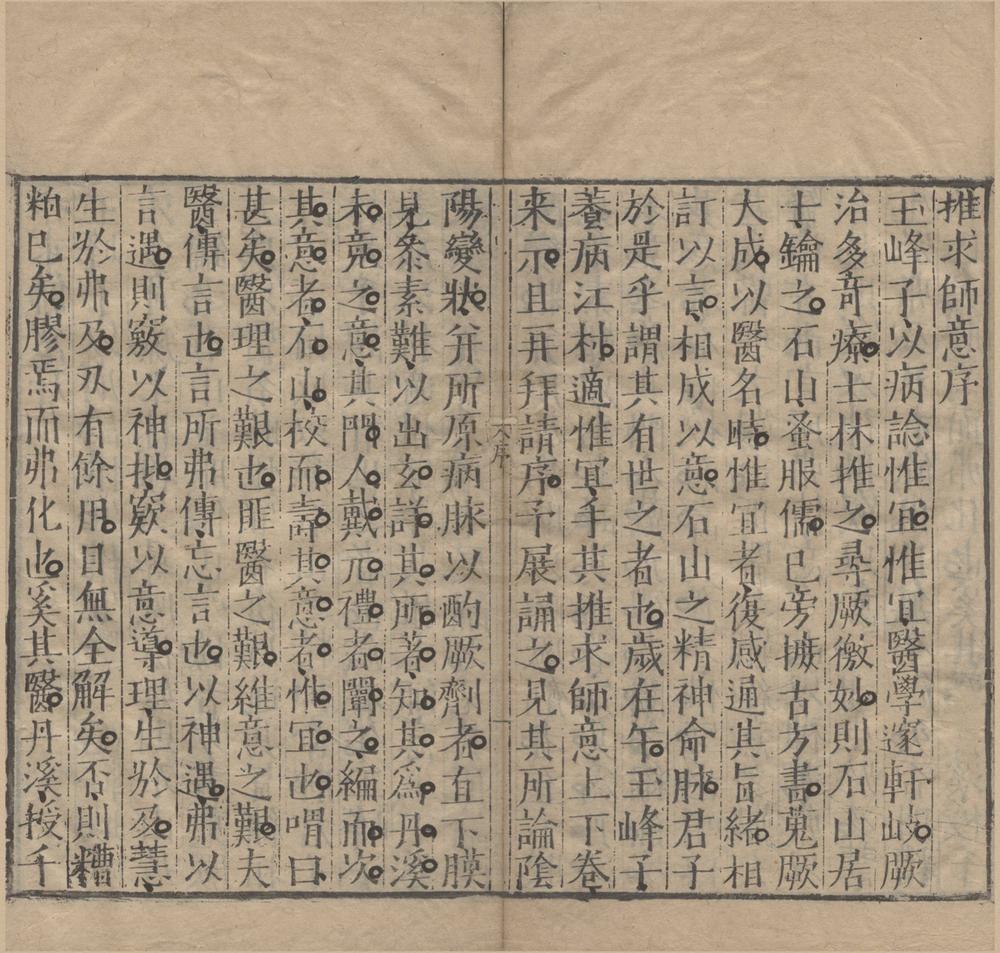 推求師意序
玉峰子以病諗惟宜惟宜醫學邃軒岐厥
治多竒療士林推之尋厥微妙則石山居
士鑰之石山蚤服儒已旁摭古方書蒐厥
大成以醫名時惟宜者復感通其旨緒相
訂以言相成以意石山之精神命脉君子
於是乎謂其有世之者也歲在午玉峰子
養病江村適惟宜手其推求師意上下卷
来示且再拜請序予展誦之見其所論陰
陽變狀并所原病脉以酌厥劑者亘下膜
見叅素難以出玄詳其所著知其爲丹溪
未竟之意其門人戴元禮者闡之編而次
其意者在山校而壽其意者惟宜也喟曰
甚矣醫理之艱也匪醫之艱維意之艱夫
醫傳言也言所弗傳忘言也以神遇弗以
言遇則竅以神批窽以意導理生於及慧
生於弗及刄有餘用目無全解矣否則糟
粕已矣膠焉而弗化也奚其醫丹溪授千
大序